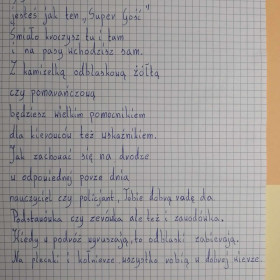 jesteś jak ten „Super Gość"
Śmiało kroczysz tu i tam
i na pasy uchodzisz sam.
Z kamizelką odblaskową żółtą
czy pomarańczową
będziesz wielkim pomocnikiem
dla kierowców też wskaźnikiem.
Jak zachować się na drodze
w odpowiedniej porze dnia
nauczyciel czy policjant, Tobie dobrą radę da.
Podstawówka czy zerówka ale też i zawodówka.
Kiedy w podróż wyruszają, to odblaski zabierają.
Na plecaki i kołnierze wszystko robią w dobrej wierze.